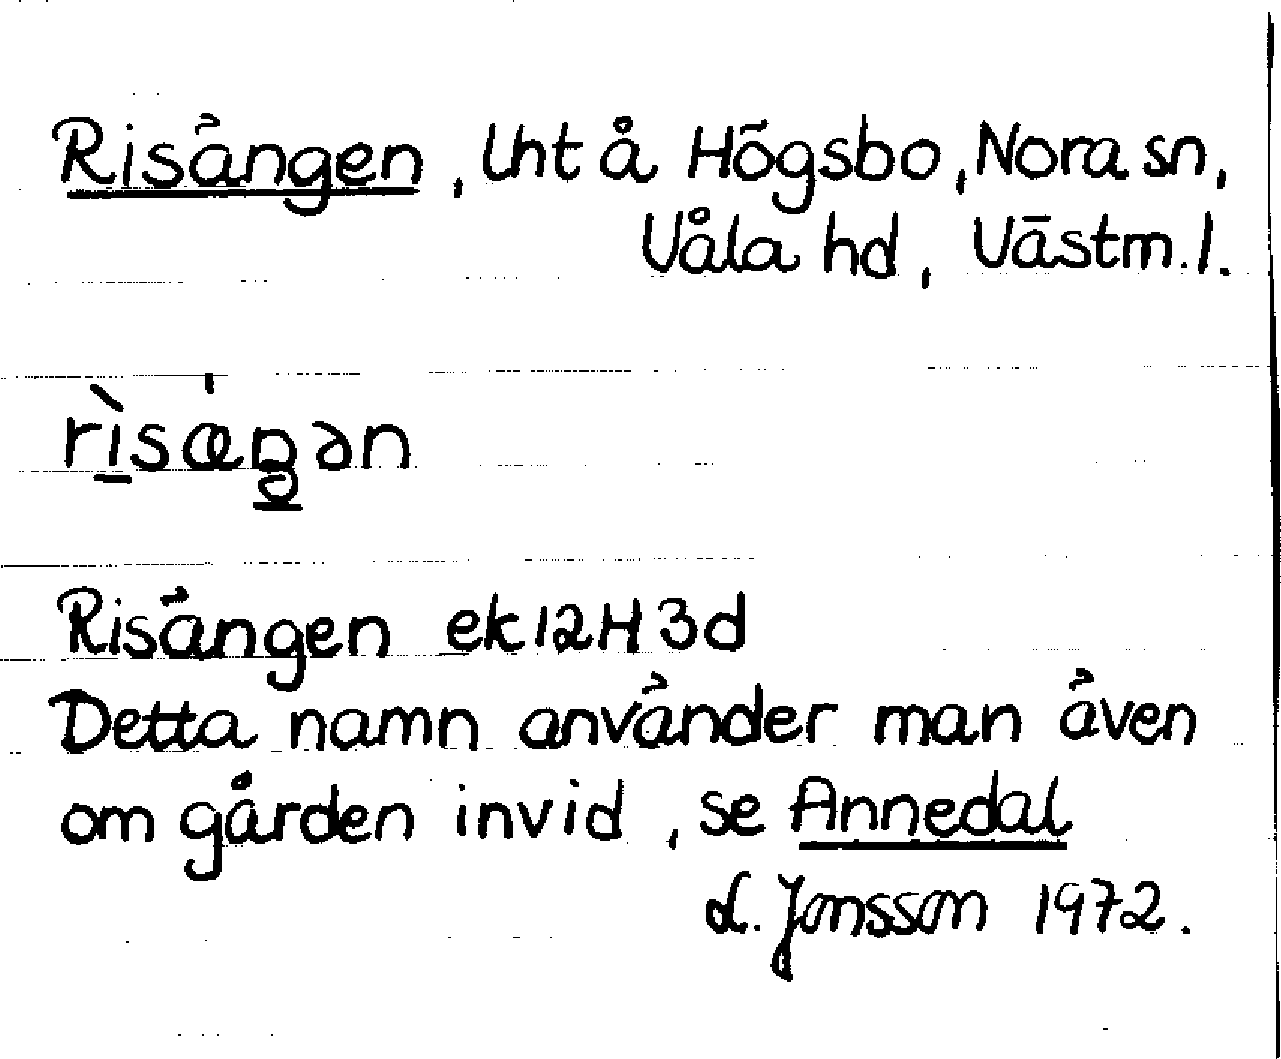 Risängen, lht å Högsbo, Nora sn,
Våla hd, Västm. l.
rìsæŋən
Risängen ek 12H 3d
Detta namn använder man även
om gården invid, se Annedal
L. Jonsson 1972.